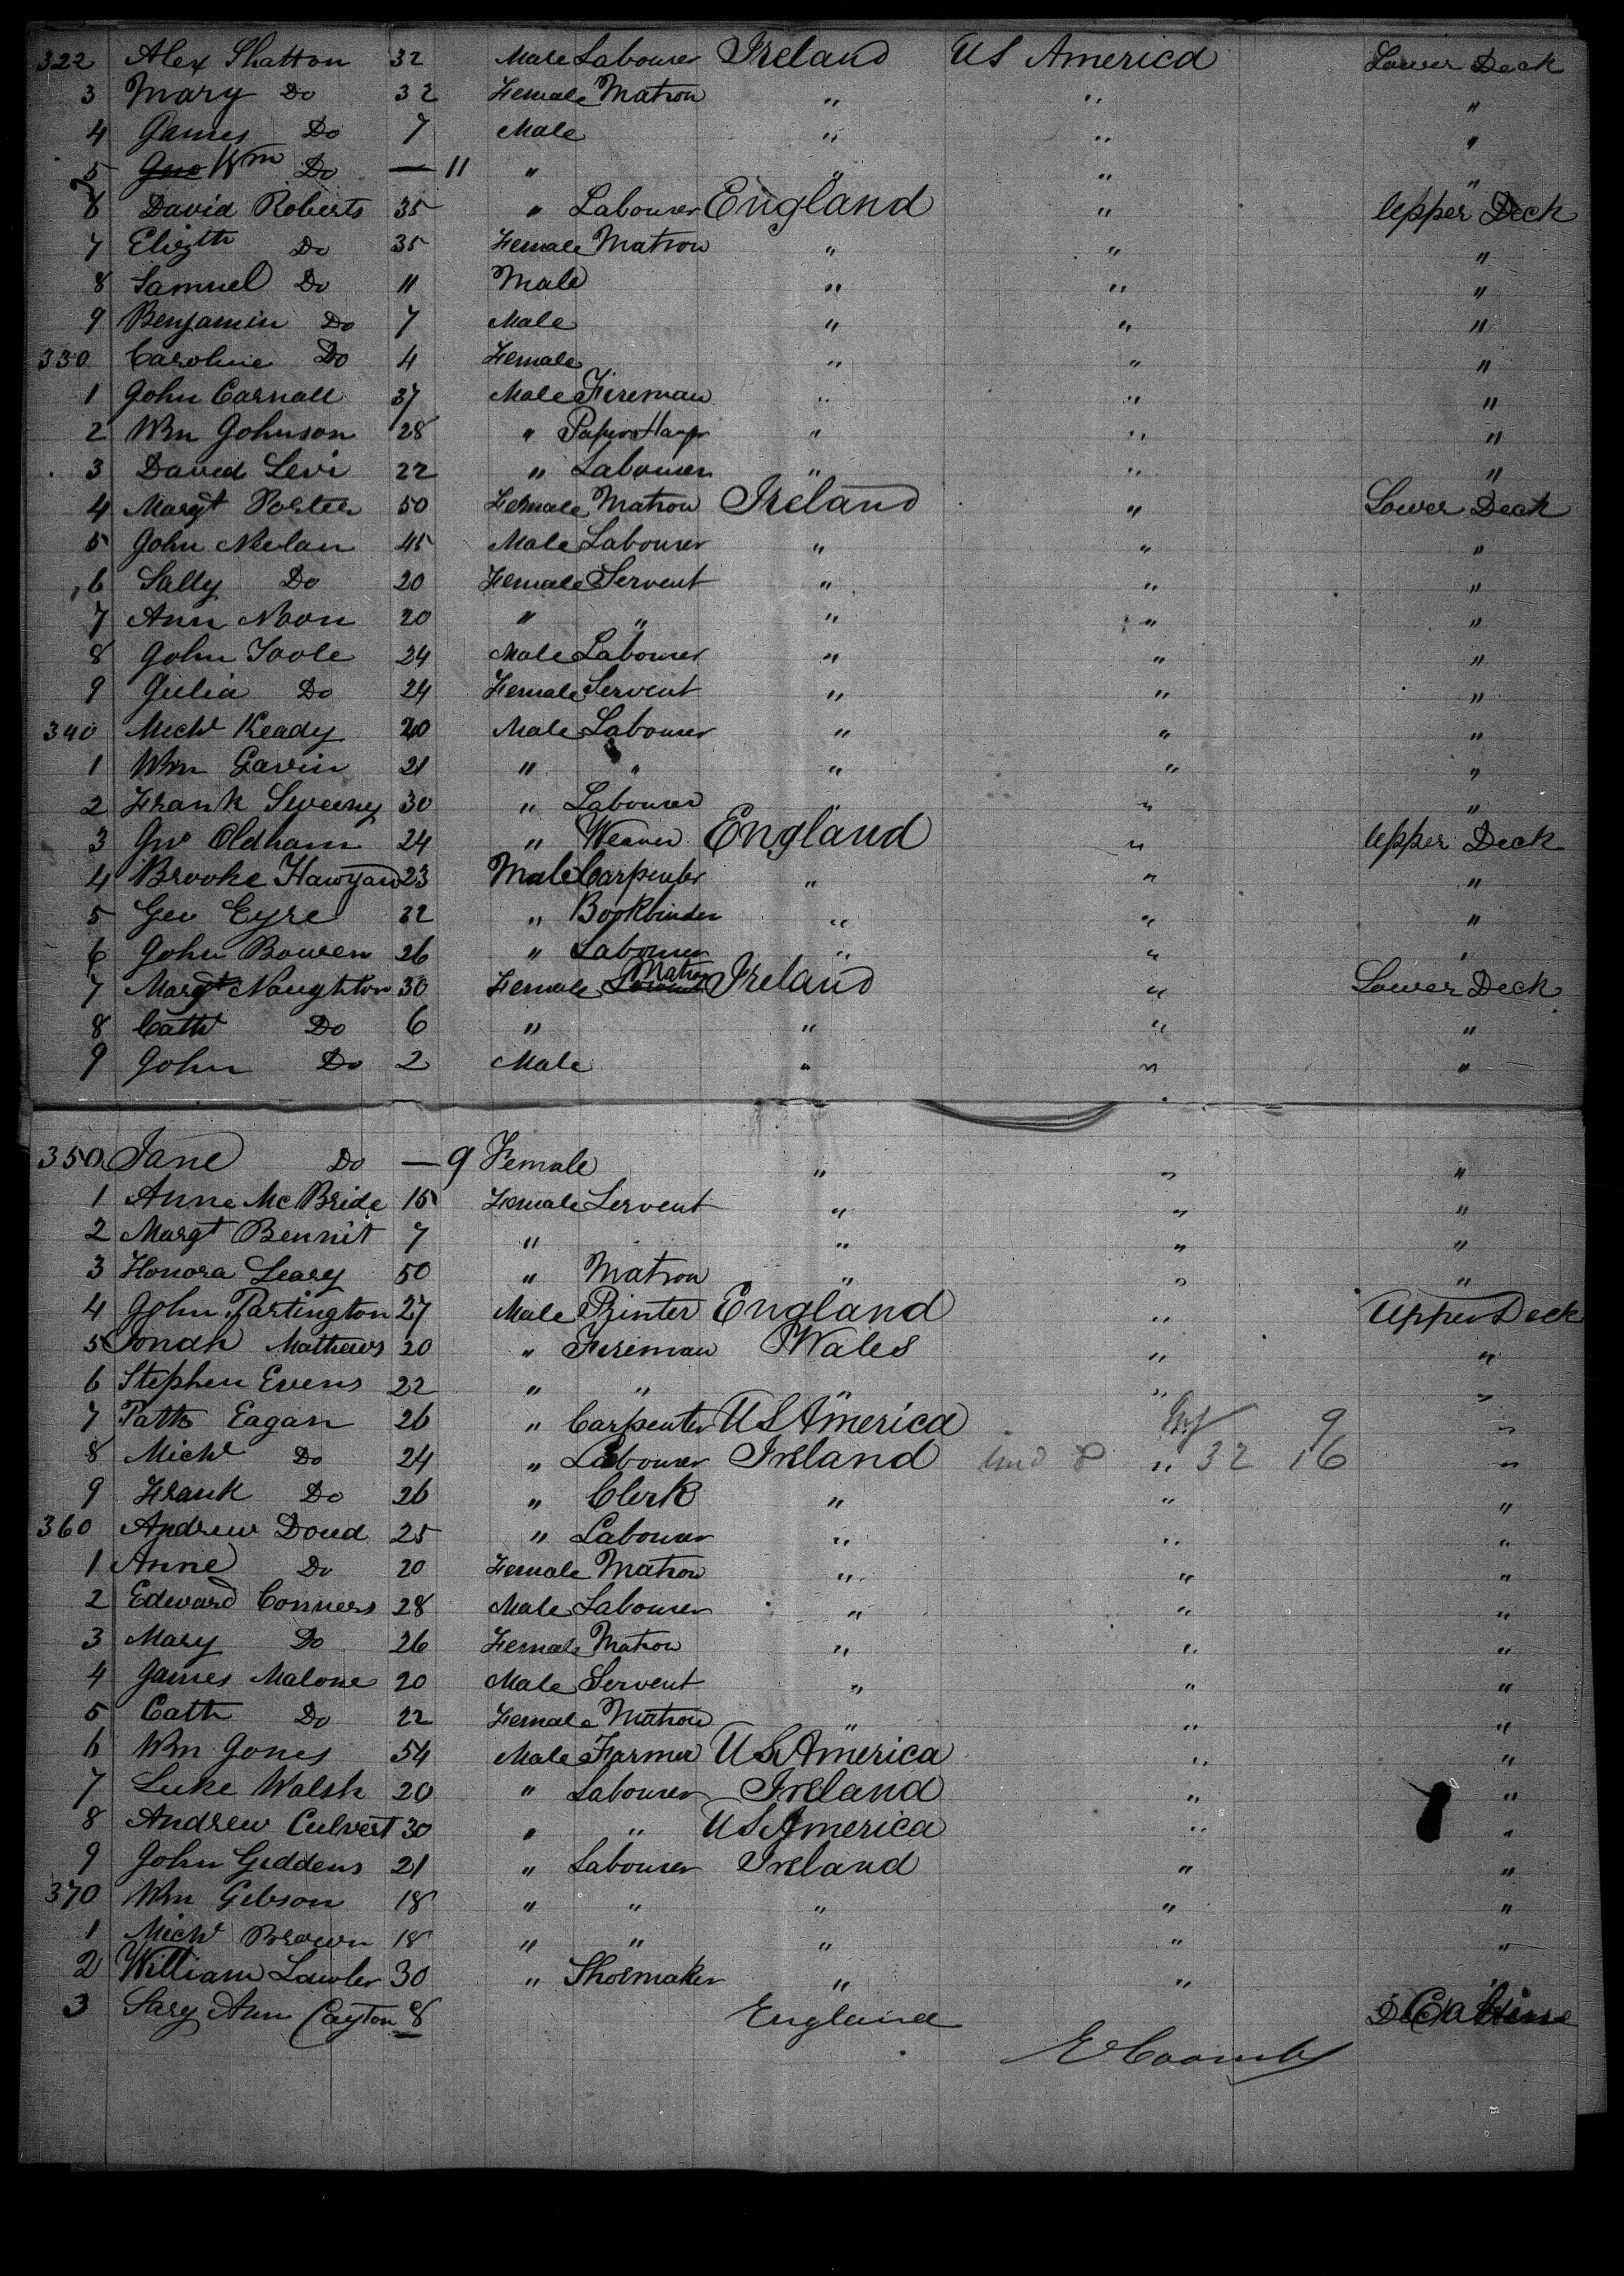 322 Alex Shatton 32 Male Labourer Ireland US America Lower Deck
3 Mary Do 32 Female Matron " " "
4 James Do 7 Male " " "
5 Wm Do — 11 " " " "
6 David Roberts 35 " Labourer England " Upper Deck
7 Elizth Do 35 Female Matron " " "
8 Samuel Do 11 Male " " "
9 Benjamin Do 7 Male " " "
330 Caroline Do 4 Female " " "
1 John Carnall 37 Male Fireman " " "
2 Wm Johnson 28 " Paper Hangr " " "
3 David Levi 22 " Labourer " " "
4 Margt Porter 50 Female Matron Ireland " Lower Deck
5 John Nolan 45 Male Labourer " " "
6 Sally Do 20 Female Servent " " "
7 Ann Noon 20 " " " " "
8 John Toole 24 Male Labourer " " "
9 Julia Do 24 Female Servent " " "
340 Michl Keady 20 Male Labourer " " "
1 Wm Gavin 21 " " " " "
2 Frank Sweeny 30 " Labourer " " "
3 Jno Oldham 24 " Weaver England " Upper Deck
4 Brooke 23 Male Carpenter " " "
5 Geo Eyre 32 " Bookbinder " " "
6 John Bowen 26 " Labourer " " "
7 Margt Naughton 30 Female Matron Ireland " Lower Deck
8 Cath Do 6 " " " "
9 John Do 2 Male " " "
350 Jane Do — 9 Female " " "
1 Anne McBride 15 Female Servent " " "
2 Margt Bennit 7 " " " "
3 Honora Leary 50 " Matron " " "
4 John Partington 27 Male Printer England " Upper Deck
5 Jonah Mathews 20 " Fireman Wales " "
6 Stephen Evens 22 " " " " "
7 Patk Eagan 26 " Carpenter US America 9 "
8 Michl Do 24 " Labourer Ireland " 32 16 "
9 Frank Do 26 " Clerk " " "
360 Andrew Doud 25 " Labourer " " "
1 Anne Do 20 Female Matron " " "
2 Edward Conners 28 Male Labourer " " "
3 Mary Do 26 Female Matron " " "
4 James Malone 20 Male Servent " " "
5 Cath Do 22 Female Matron " " "
6 Wm Jones 54 Male Farmer US America " "
7 Luke Walsh 20 " Labourer Ireland " "
8 Andrew Culvert 30 " " US America " "
9 John Giddens 21 " Labourer Ireland " "
370 Wm Gibson 18 " " " " "
1 Michl Brown 18 " " " " "
2 William Lawler 30 " Shoemaker " " "
3 Sary Ann Cayton 8 England
E Coombs